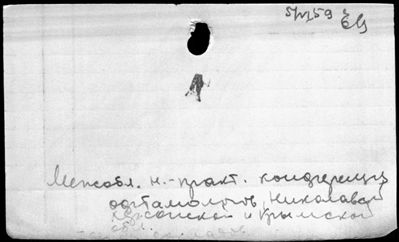 5/VI 59
Межобл. н.-практ. конференция
офтамологов, Николаевской
Херсонской и Крымской
обл.